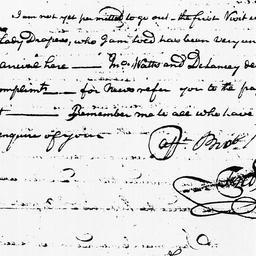 I am not yet permitted to go out - the first Visit
Lady Drapers, who I am told has been very un
here — Mrs. Watts and Delancey de
— for News refer you to the pa
— Remember me to all who have
enquire of yours
Afft. Brotr.